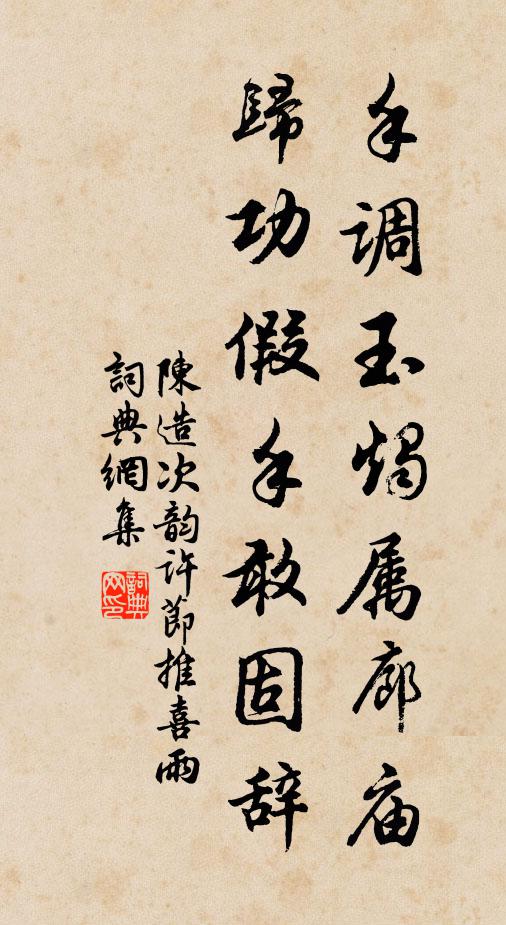 手调玉烛属廊庙
歸功假手敢固辞
陳造次韵许節推喜雨
詞典網集
詞典
网印